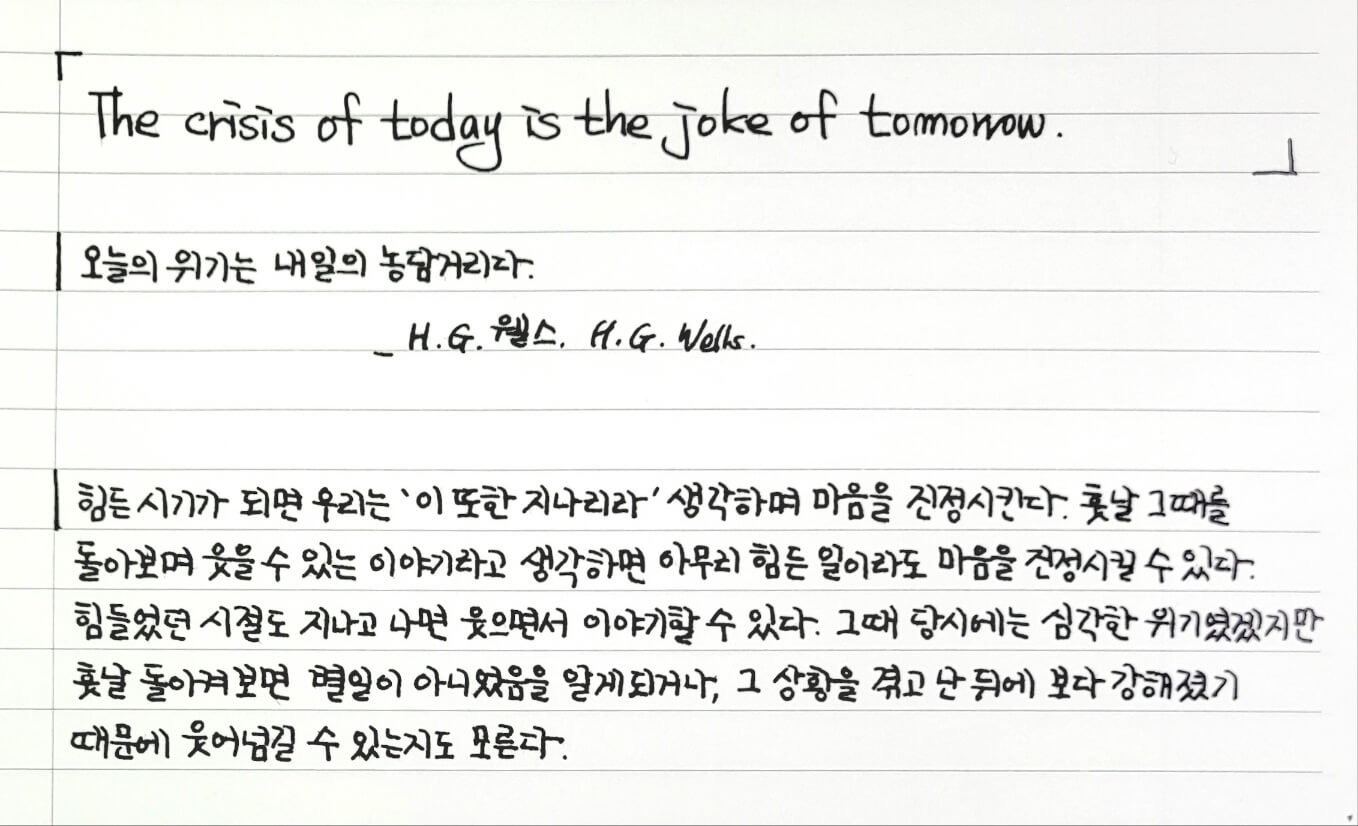 「The crisis of today is the joke of tomorrow.」
오늘의 위기는 내일의 농담거리다.
_ H.G. 웰스. H.G. Wells.
힘든 시기가 되면 우리는 '이 또한 지나리라' 생각하며 마음을 진정시킨다. 훗날 그때를
돌아보며 웃을 수 있는 이야기라고 생각하면 아무리 힘든 일이라도 마음을 진정시킬 수 있다.
힘들었던 시절도 지나고 나면 웃으면서 이야기할 수 있다. 그때 당시에는 심각한 위기였겠지만
훗날 돌이켜보면 별일이 아니었음을 알게되거나, 그 상황을 겪고 난 뒤에 보다 강해졌기
때문에 웃어넘길 수 있는지도 모른다.